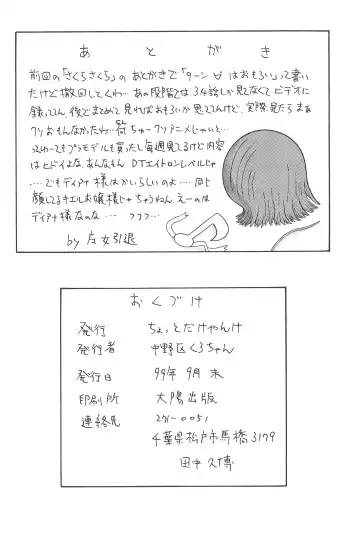 あとがき
前回の「さくらさくら」のあとがきで「ターン∀はおもろい」って書い
たけど撤回してくわ…あの段階では3.4話しか見てなくてビデオに
録っててん、後でまとめて見ればおもろいか思ててんけど、実際見たらまぁ
クソおもんなかったわ…
ってゆーてもプラモデルも買ったし毎週見てるけど内容
はヒドイよな、あんなもん DTエイトロンレベルじゃ
…でもディアナ様はかいらしいのよ…同じ
顔してるキエルお嬢様じゃちゃうねん、えーのは
ディアナ様なのな… フフフ…
by 友女引退
おくづけ
発行 ちょっとだけやんけ
発行者 中野区くろちゃん
発行日 99年9月末
印刷所 大陽出版
連絡先 271-0051
千葉県松戸市馬橋3179
田中久博